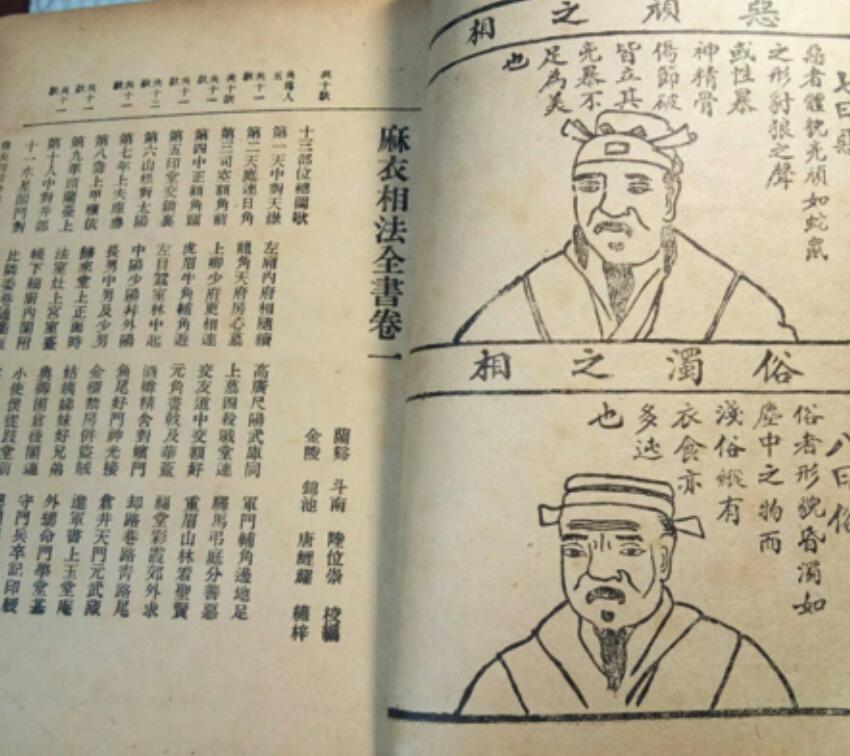 惡頑之相
七曰惡
惡者體貌兇頑如蛇鼠
之形豺狼之聲
或性暴
神精骨
傷節破
皆立其
兇暴不
足為美
也
俗濁之相
八曰俗
俗者形貌昏濁如
塵中之物而
淺俗縱有
衣食亦
多迍
也
麻衣相法全書卷一
蘭谿 斗南 陸位崇 校編
金陵 錦池 唐鯉耀 繡梓
十三部位總圖歌
第一天中對天嶽 左廂內府相隨續 高廣尺陽武庫同 軍門輔角邊地足
第二天庭連日角 龍角天府房心墓 上墓四殺戰堂連 驛馬弔庭分善惡
第三司空額角前 上卿少府更相連 交友道中交額好 重眉山林看聖賢
第四中正額角頭 虎眉牛角輔角遊 元角斧戟及華蓋 福堂彩霞郊外求
第五印堂交鎖裏 左目蠶室林中起 酒樽精舍對嬪門 劫路巷路青路尾
第六山根對太陽 中陽少陽并外陽 魚尾奸門神光接 倉井天門元武藏
第七年上夫座參 長男中男及少男 金櫃禁房併盜賊 遊軍書上玉堂庵
第八壽上甲櫃依 歸來堂上正面時 姑姨姊妹好兄弟 外甥命門學堂基
第九準頭蘭臺上 法室灶上宮室臺 典御囷倉後閣連 守門兵卒記印綬
第十人中對井部 帳下細廚內閣附 小使僕從妓堂前
十一水星閣門對